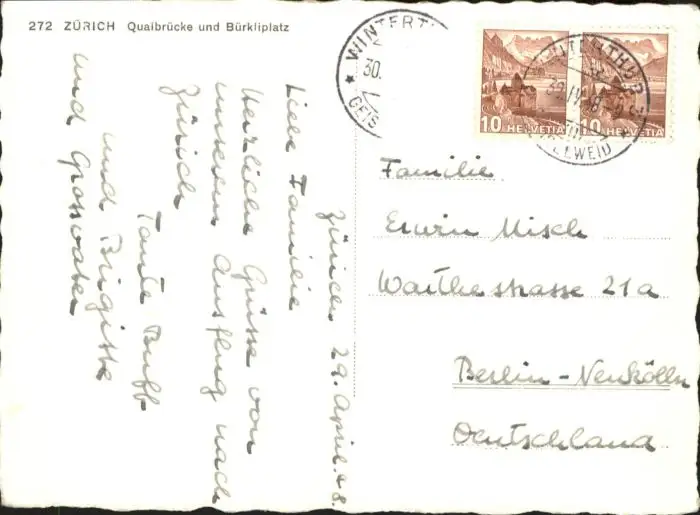 272 ZÜRICH Quaibrücke und Bürkliplatz
WINTERTHUR
30.
1
GEIS
10 HELVETIA
10 HELVETIA
WINTERTHUR
30. IV. 48
WEID
Zürich 29. April 48.
Liebe Familie
Herzliche Grüsse von
unserem Ausflug nach
Zürich
Tante Buff
und Brigitte
und Grossvater
Familie
Erwin Misch
Warthestrasse 21a
Berlin-Neukölln
Deutschland